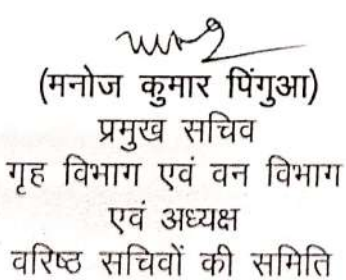 (मनोज कुमार पिंगुआ)
प्रमुख सचिव
गृह विभाग एवं वन विभाग
एवं अध्यक्ष
वरिष्ठ सचिवों की समिति